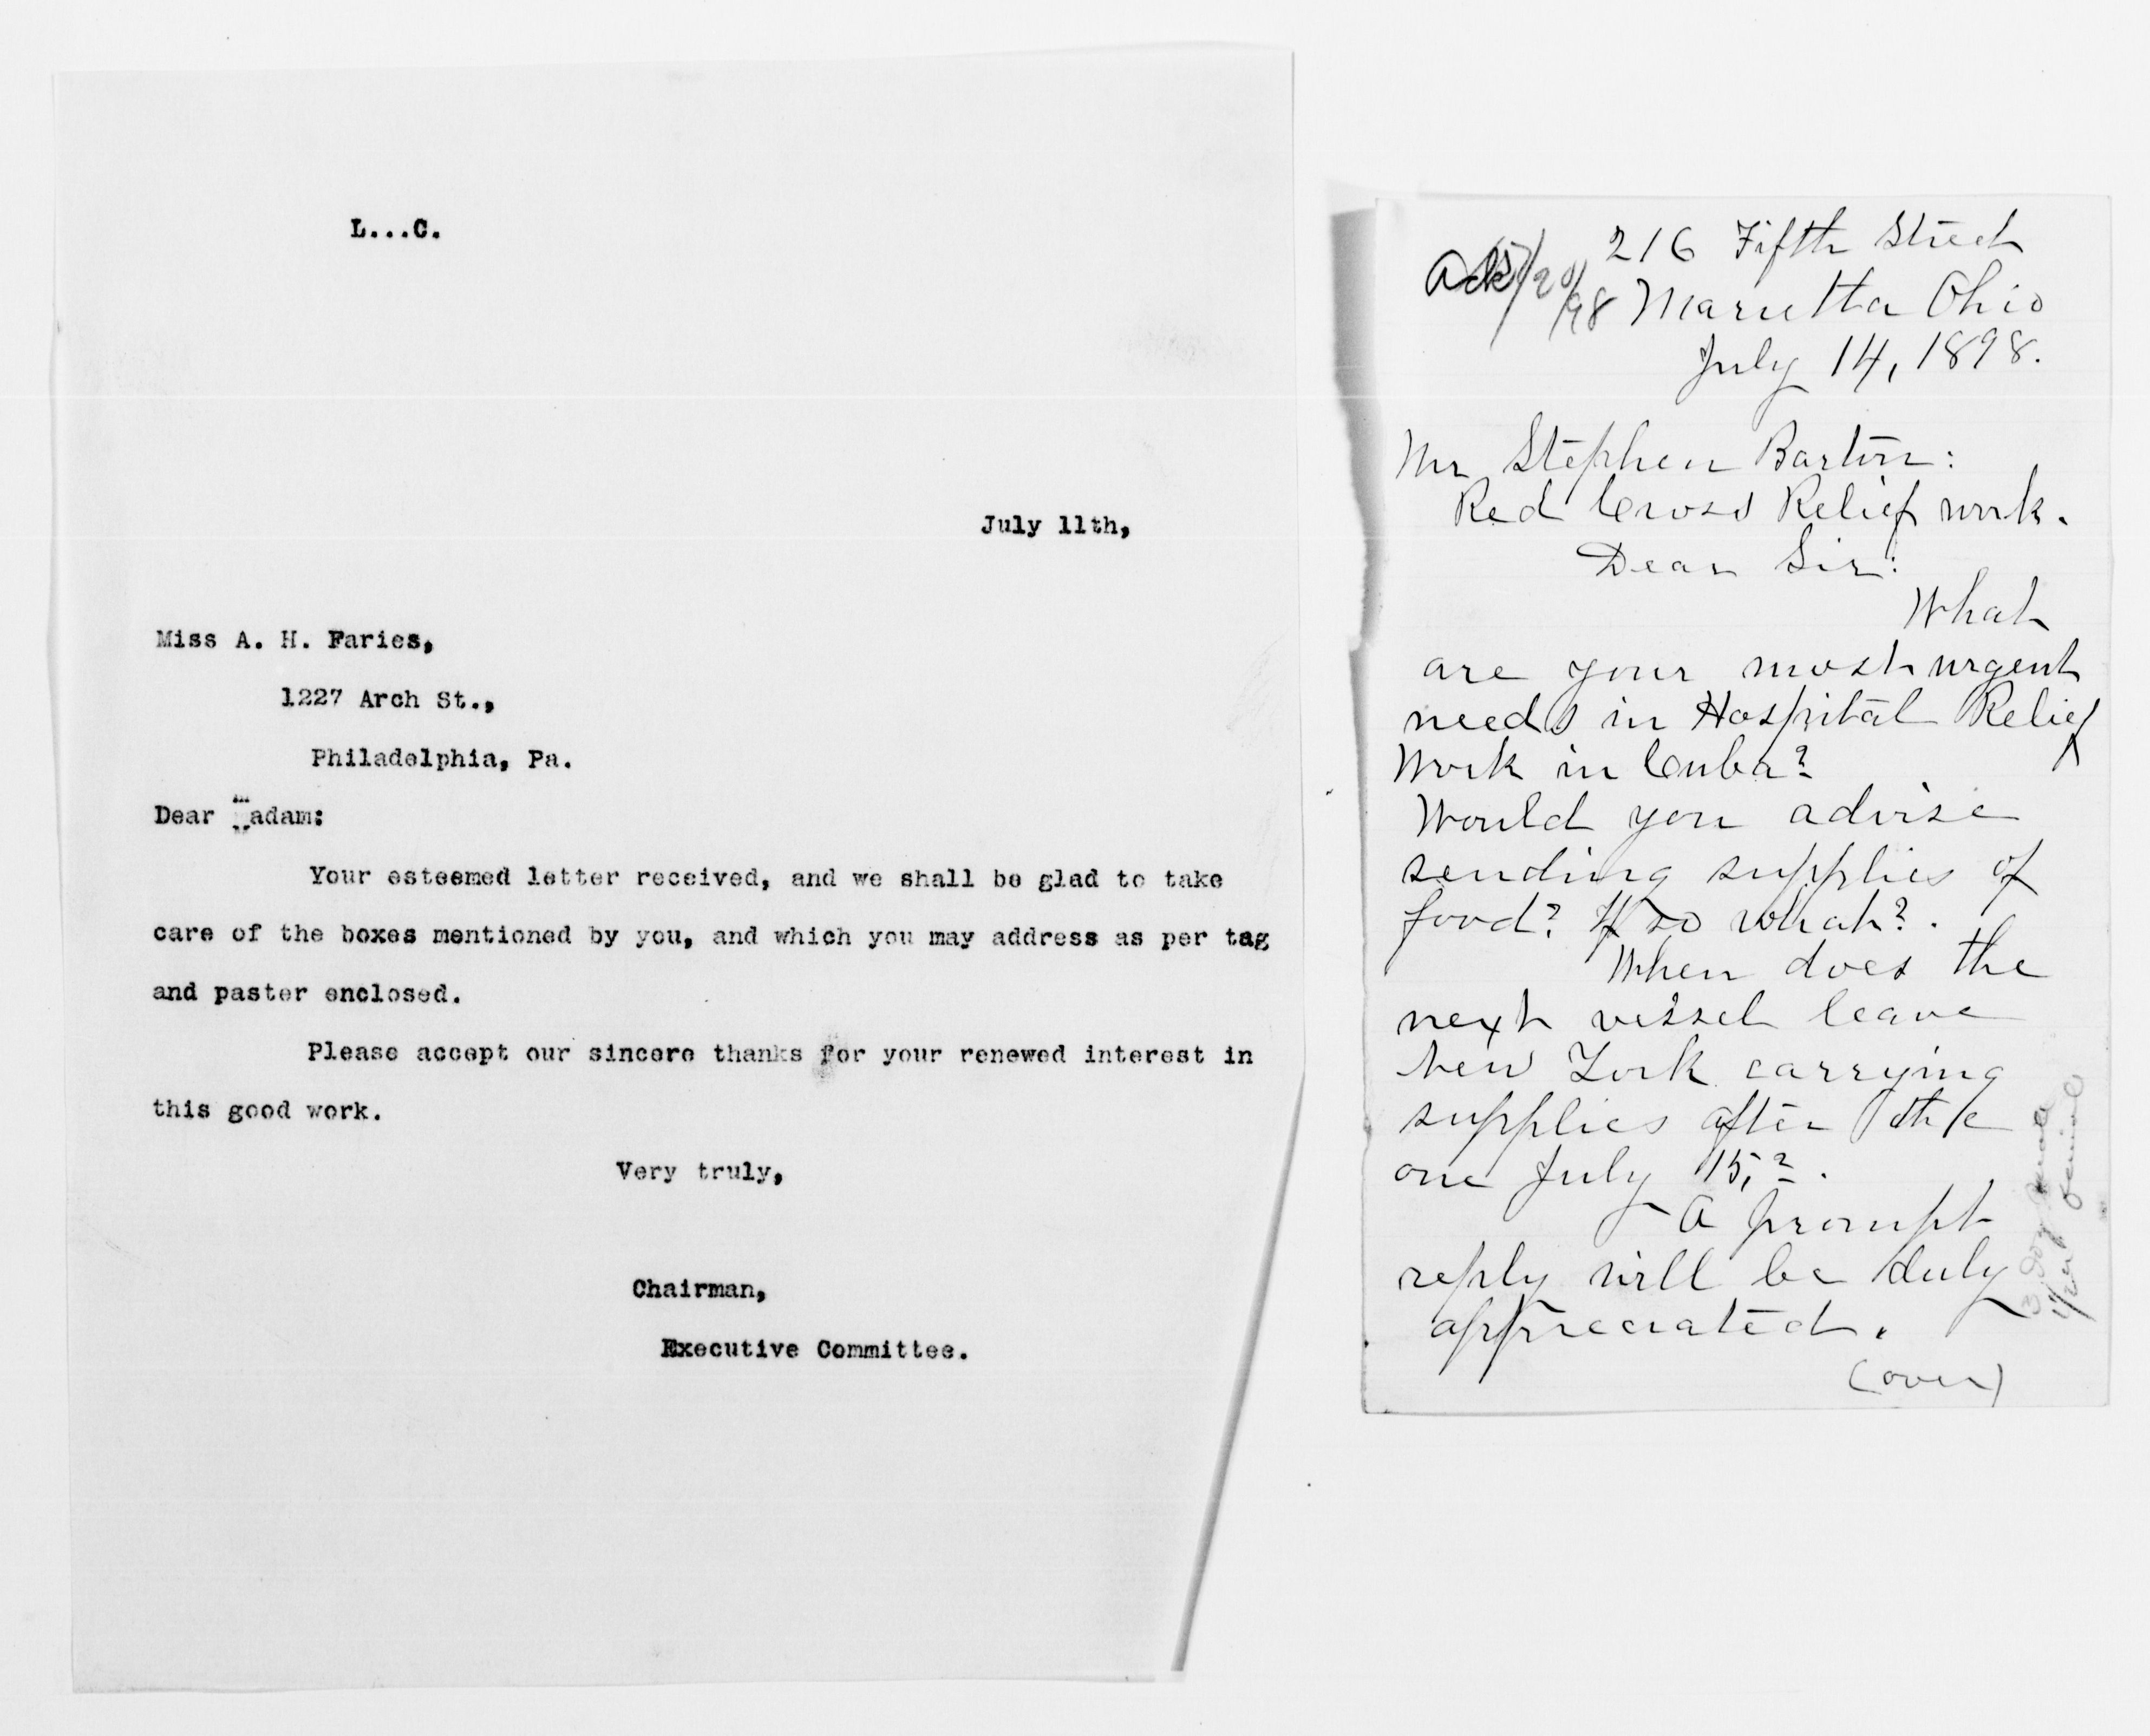 L...C.
July 11th,
Miss A. H. Faries,
1227 Arch St.,
Philadelphia, Pa.
Dear madam:
Your esteemed letter received, and we shall be glad to take
care of the boxes mentioned by you, and which you may address as per tag
and paster enclosed.
Please accept our sincere thanks for your renewed interest in
this good work.
Very truly,
Chairman,
Executive Committee.
216 Fifth Street
Ack 7/20/98
Marietta Ohio
July 14, 1898.
Mr Stephen Barton:
Red Cross Relief work.
Dear Sir:
What
are your most urgent
needs in Hospital Relief
Work in Cuba?
Would you advise
sending supplies of
food? If so what?.
When does the
next vessel leave
New York carrying
supplies after the
one July 15,?.
A prompt
reply will be duly
appreciated.
(over)